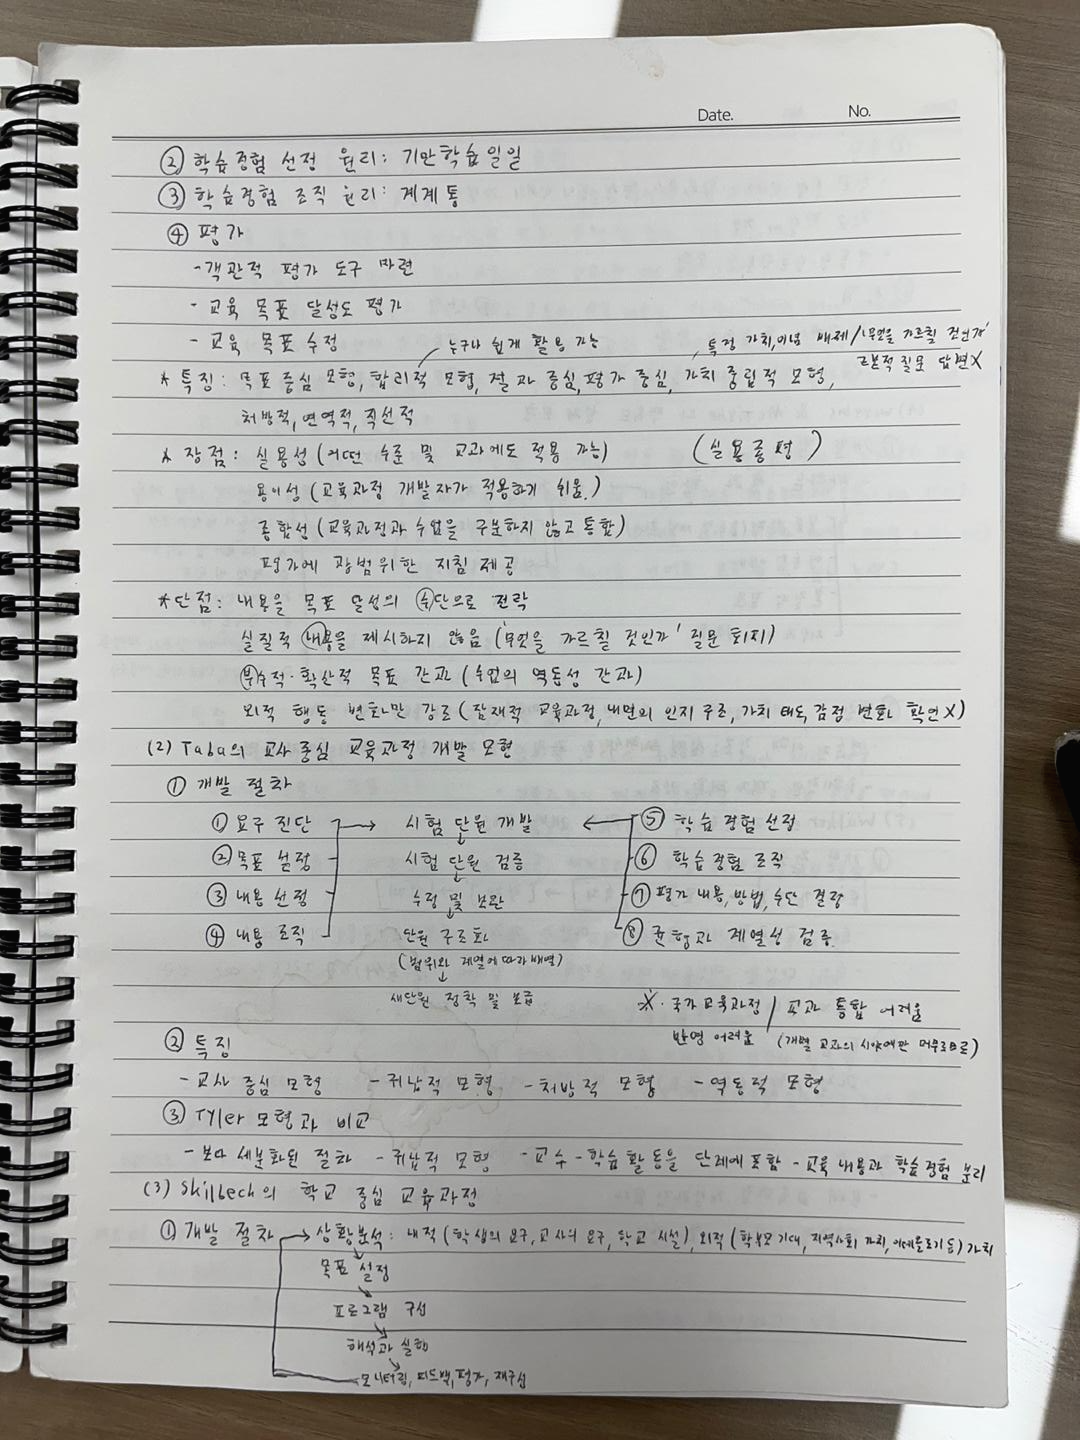 Date. No.
② 학습경험 선정 원리: 기만학습일일
③ 학습경험 조직 원리: 계계통
④ 평가
- 객관적 평가 도구 마련
- 교육 목표 달성도 평가
- 교육 목표 수정
누구나 쉽게 활용 가능
특정 가치, 이념 배제 / '무엇을 가르칠 것인가'
근본적 질문 답변X
* 특징: 목표 중심 모형, 합리적 모형, 결과 중심, 평가 중심, 가치 중립적 모형,
처방적, 연역적, 직선적
* 장점: 실용성 (어떤 수준 및 교과에도 적용 가능) (실용종평)
용이성 (교육과정 개발자가 적용하기 쉬움.)
종합성 (교육과정과 수업을 구분하지 않고 통합)
평가에 광범위한 지침 제공
* 단점: 내용을 목표 달성의 수단으로 전락
실질적 내용을 제시하지 않음 ('무엇을 가르칠 것인가' 질문 회피)
부수적·확산적 목표 간과 (수업의 역동성 간과)
외적 행동 변화만 강조 (잠재적 교육과정, 내면의 인지 구조, 가치 태도, 감정 변화 확인X)
(2) Taba의 교사 중심 교육과정 개발 모형
① 개발 절차
① 요구 진단 → 시험 단원 개발 ← ⑤ 학습 경험 선정
② 목표 설정 시험 단원 검증 ⑥ 학습경험 조직
③ 내용 선정 수정 및 보완 ⑦ 평가 내용, 방법, 수단 결정
④ 내용 조직 단원 구조화 ⑧ 균형과 계열성 검증.
(범위와 계열에 따라 배열)
새단원 정착 및 보급
※ · 국가 교육과정 / 교과 통합 어려움
반영 어려움 (개별 교과의 시야에만 머무르므로)
② 특징
- 교사 중심 모형 - 귀납적 모형 - 처방적 모형 - 역동적 모형
③ Tyler 모형과 비교
- 보다 세분화된 절차 - 귀납적 모형 - 교수-학습 활동을 단계에 포함 - 교육 내용과 학습경험 분리
(3) Skilbeck의 학교 중심 교육과정
① 개발 절차 → 상황분석: 내적 (학생의 요구, 교사의 요구, 학교 시설), 외적 (학부모 기대, 지역사회 가치, 이데올로기 등) 가치
목표 설정
프로그램 구성
해석과 실행
모니터링, 피드백, 평가, 재구성